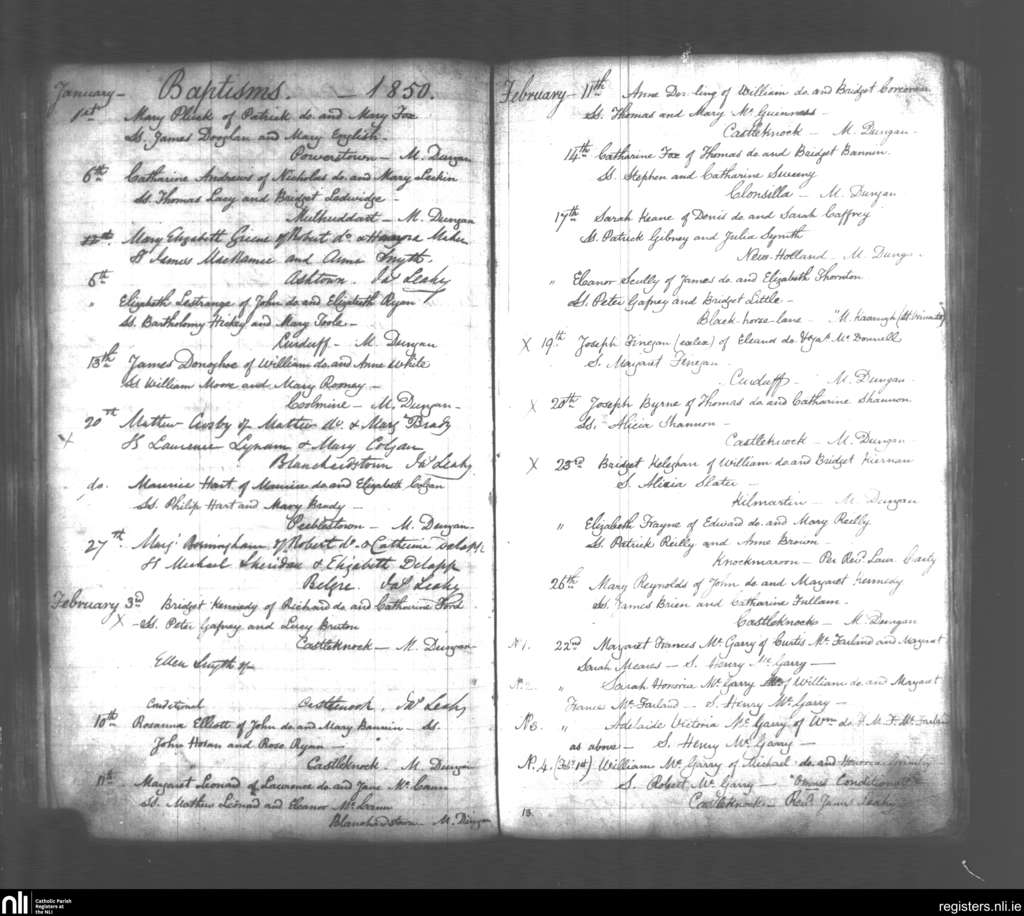 January – Baptisms. – 1850.
1st Mary Pluck of Patrick do and Mary Fox
Ss. James Dooglan and Mary English.
Powerstown – M. Dungan
6th Catharine Andrews of Nicholas do. and Mary
Ss. Thomas Lacy and Bridget Ledwidge –
Mulhuddart – M. Dungan
Mary Elizabeth Greene of Robert do & Maher
Ss James MacNamee and Anne Smyth.
6th Ashtown. Jas Leahy
" Elizabeth Lestrange of John do and Elizabeth Ryan
Ss. Bartholomy Hickey and Mary Toole –
Curduff – M. Dungan
13th James Donoghoe of William do. and Anne White
Ss William Moore and Mary Rooney –
Coolmine – M. Dungan –
20th Mathew Crosby of Mathew do. & Mary Brady
X Ss Laurence Lynam & Mary Colgan
Blanchardstown Jas Leahy
do. Maurice Hart of Maurice do and Elizabeth Colgan
Ss. Philip Hart and Mary Brady –
Peeblestown – M. Dungan –
27th. Birmingham of Robert do. & Catherine
Ss Michael Sheridan & Elizabeth Delapp
Jas Leahy
February 3rd Bridget Kennedy of Richard do and Catharine Ford
X – Ss. Peter Gafney and Lucy Bruton
Castleknock – M. Dungan –
Ellen Smyth of
Conditional Castleknock. Jas Leahy
10th Rosanna Elliott of John do and Mary Bannin – Ss.
John Horan and Rose Ryan –
Castleknock – M. Dungan
11th Margaret Leonard of Lawrence do and Jane McCann
Ss. Mathew Leonard and Eleanor McCann
Blanchardstown – M. Dungan
February – 11th Anne Dorling of William do and Bridget Corcoran
Ss. Thomas and Mary Mc Guinness –
Castleknock – M. Dungan –
14th Catharine Fox of Thomas do and Bridget Bannin.
Ss. Stephen and Catharine Sweeny
Clonsilla – M. Dungan
17th Sarah Keane of Denis do and Sarah Caffrey
Ss. Patrick Gibney and Julia Smith
New-Holland. M. Dungan
" Eleanor Scully of James do and Elizabeth Thornton
Ss. Peter Gafney and Bridget Little –
Black-horse-lane – M.
X 19th Joseph Finegan of do Mc Donnell
S. Margaret Finegan
Curduff – M. Dungan.
X 20th Joseph Byrne of Thomas do and Catharine Shannon.
Ss. Alicia Shannon –
Castleknock – M. Dungan
X 23rd Bridget Keleghan of William do and Bridget Kiernan
S. Alicia Slater –
Kilmartin – M Dungan
" Elizabeth Frayne of Edward do. and Mary Reilly
Ss. Patrick Reilly and Anne Brown –
Knockmaroon – Per Revd Laur.
26th Mary Reynolds of John do and Margaret Kennedy
Ss. James Brien and Catharine Fullam –
Castleknock – M. Dungan
No 1. 22nd Margaret Frances McGarry of Curtis McFarland and Margaret
Sarah Meares – S. Henry McGarry –
No 2 " Sarah Honoria McGarry of William do and Margaret
Frances McFarland – S. Henry McGarry –
No 3. " Adelaide Victoria McGarry of Wm do &
as above – S. Henry McGarry –
No. 4. (Feb. 1st) William McGarry of Michael do and Honoria
S. Robert McGarry –
Castleknock – Revd James Leahy
13.
nli
Catholic Parish
Registers at
the NLI
registers.nli.ie